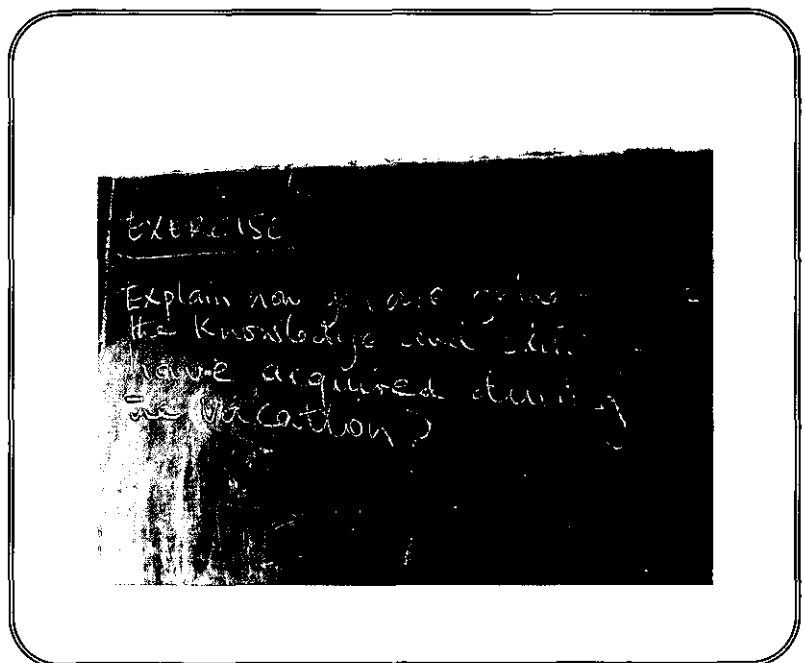 EXERCISE
Explain how you are going
the Knowledge and
have acquired during
the (vacation)